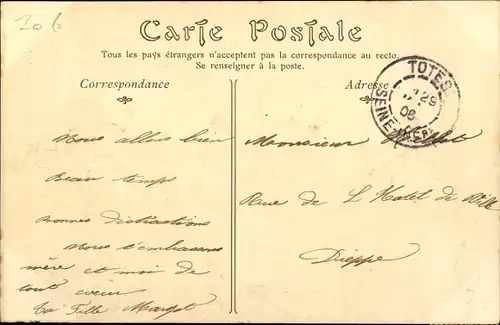 Carte Postale
Tous les pays étrangers n'acceptent pas la correspondance au recto.
Se renseigner à la poste.
Correspondance
Adresse
TOTES
29
06
SEINE INFRE
Nous allons bien
Beau temps
Bonnes distractions
Nous t'embrassons
mère et moi de
tout cœur
Ta fille Margot
Monsieur
Rue de L'Hotel de Ville
Dieppe